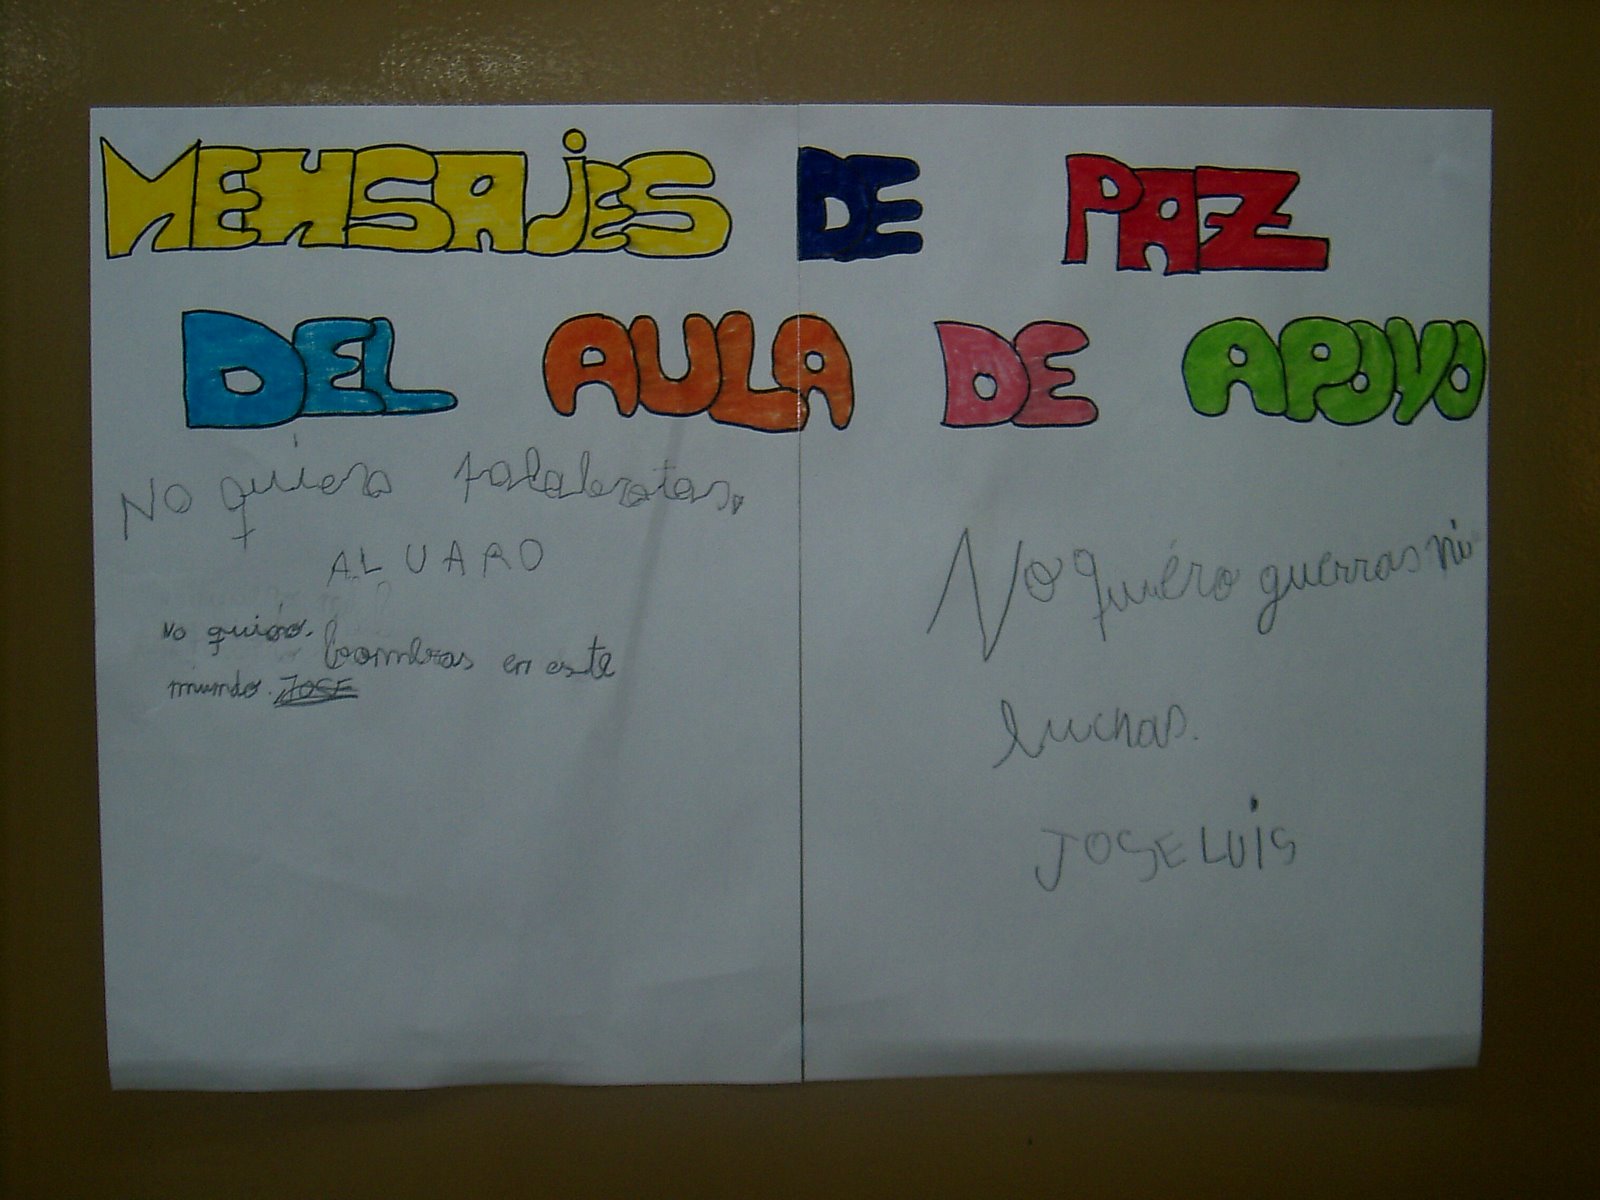 MENSAJES DE PAZ
DEL AULA DE APOYO
No quiero palabrotas.
ALVARO
No quiero.
bombras en este
mundo. JOSE
No quiero guerras ni
luchas.
JOSE LUIS